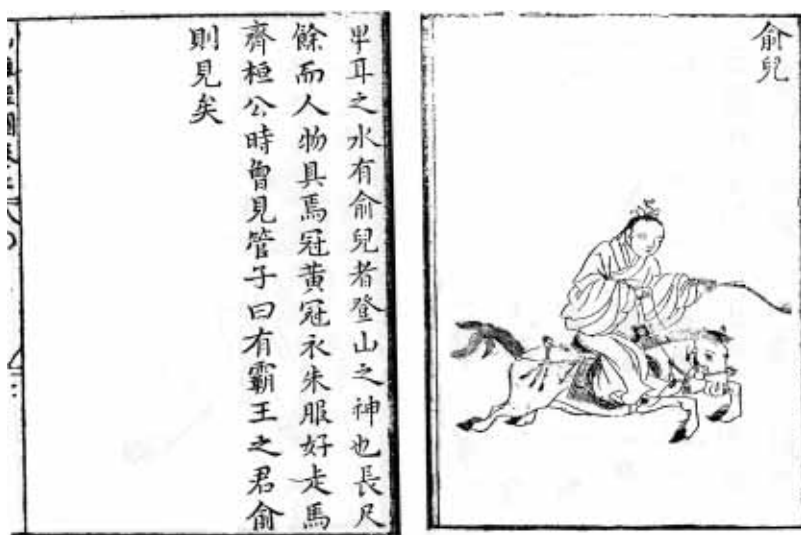 俞兒
卑耳之水有俞兒者登山之神也長尺
餘而人物具焉冠黃冠衣朱服好走馬
齊桓公時曾見管子曰有霸王之君俞
則見矣